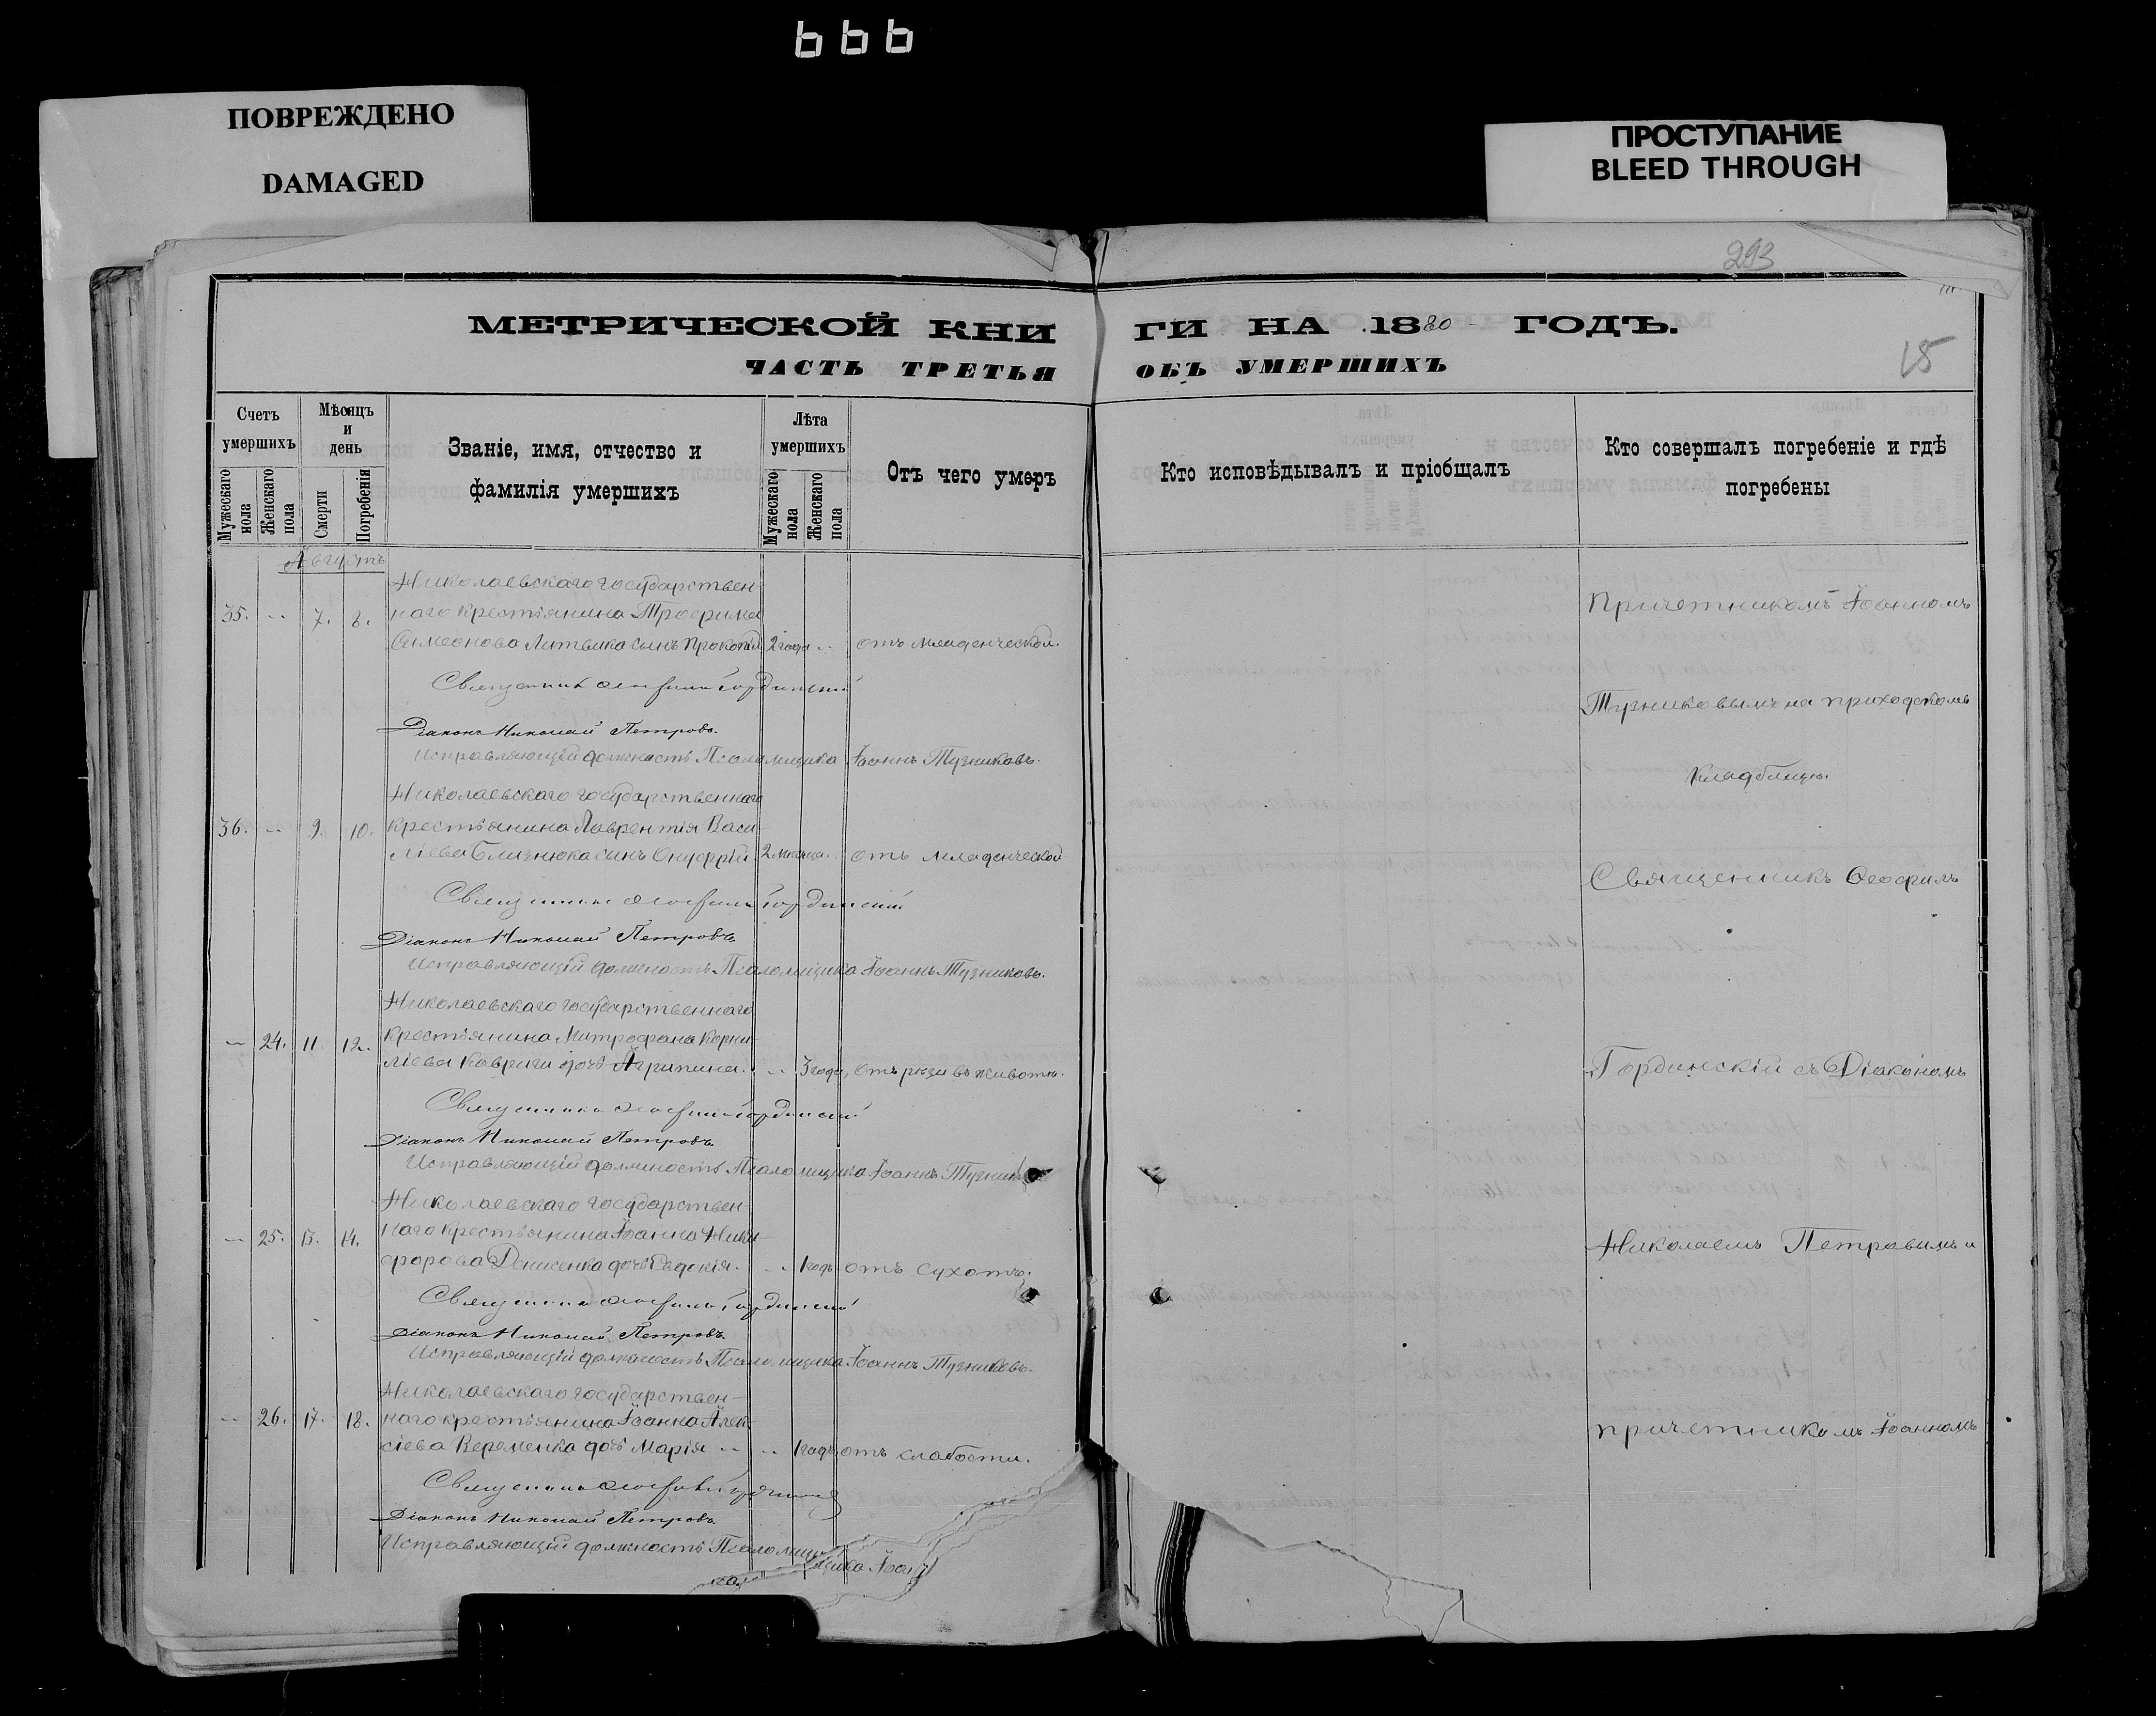 666
ПОВРЕЖДЕНО
DAMAGED
ПРОСТУПАНИЕ
BLEED THROUGH
293
15
МЕТРИЧЕСКОЙ КНИ ГИ НА 1880 ГОДЪ.
ЧАСТЬ ТРЕТЬЯ ОБЪ УМЕРШИХЪ
Счетъ умершихъ
Мужескаго пола
Женскаго пола
Мѣсяцъ и день
Смерти
Погребенія
Званіе, имя, отчество и фамилія умершихъ
Лѣта умершихъ
Мужескаго пола
Женскаго пола
Отъ чего умеръ
Кто исповѣдывалъ и пріобщалъ
Кто совершалъ погребеніе и гдѣ погребены
Августъ
Николаевскаго государствен-
35. " 7. 8. наго крестьянина Трофима
Симеонова Литвика сынъ Прокопій 2 года " отъ младенческой.
Священникъ Ѳеофилъ Гординскій
Діаконъ Николай Петровъ.
Исправляющій должность Псаломщика Іоаннъ Тузниковъ.
Николаевскаго государственнаго
36. " 9. 10. крестьянина Лаврентія Васи-
ліева Близнюка сынъ Онуфрій 2 мѣсяца. отъ младенческой
Священникъ Ѳеофилъ Гординскій
Діаконъ Николай Петровъ.
Исправляющій должность Псаломщика Іоаннъ Тузниковъ.
Николаевскаго государственнаго
" 24. 11. 12. крестьянина Митрофана Корни-
ліева Кавриги дочь Агрипина. " 3 года, отъ рези въ животѣ.
Священникъ Ѳеофилъ Гординскій
Діаконъ Николай Петровъ.
Исправляющій должность Псаломщика Іоаннъ Тузник
Николаевскаго государствен-
" 25. 13. 14. наго крестьянина Іоанна Ники-
форова Денисенка дочь Евдокія. " 1 годъ отъ сухотъ.
Священникъ Ѳеофилъ Гординскій
Діаконъ Николай Петровъ.
Исправляющій должность Псаломщика Іоаннъ Тузниковъ.
Николаевскаго государствен-
" 26. 17. 18. наго крестьянина Іоанна Алек-
сіева Веременка дочь Марія " " 1 годъ отъ слабости.
Священникъ Ѳеофилъ
Діаконъ Николай Петровъ.
Исправляющій должность Псаломщика Іоан
Причетникомъ Іоанномъ
Тузниковымъ на приходскомъ
кладбищѣ.
Священникъ Ѳеофилъ
Гординскій съ Діакономъ
Николаемъ Петровымъ и
причетникомъ Іоанномъ